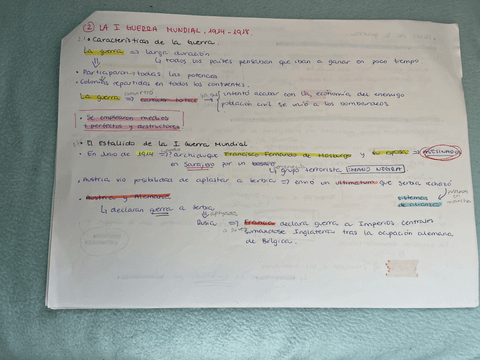 ② LA I GUERRA MUNDIAL, 1914-1918
• Características de la Guerra.
La guerra ⇒ larga duración
↳ todos los países pensaban que iban a ganar en poco tiempo
• Participaron todas las potencias
Colonias repartidas en todos los continentes.
La guerra ⇒ intentó acabar con la economía del enemigo
población civil se unió a los bombardeos
• Se emplearon medios
+ perfectos y destructores
• El Estallido de la I Guerra Mundial
• En Junio de 1914 ⇒ archiduque Francisco Fernando de Habsburgo y su esposa ⇒ ASESINADOS
en Sarajevo por un bosnio
↳ grupo terrorista (MANO NEGRA)
• Austria vio posibilidad de aplastar a Serbia ⇒ envió un ultimatum que Serbia rechazó
• Austria y Alemania
sistemas
↳ declaran guerra a Serbia
Rusia ⇒ Francia declara guerra a Imperios Centrales
sumándose Inglaterra tras la ocupación alemana
de Bélgica.